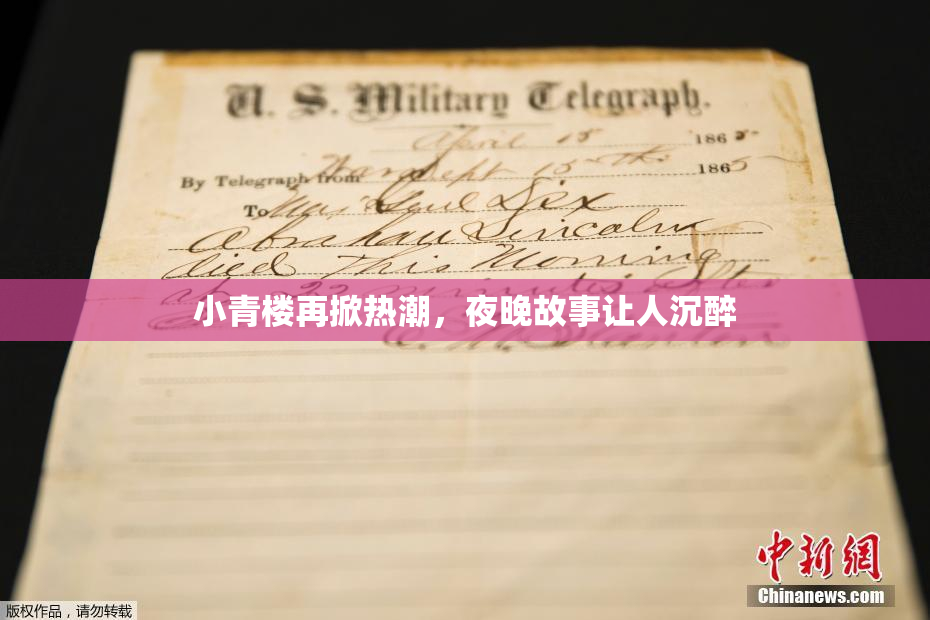 U. S. Military Telegraph.
April 15 1865
By Telegraph from War Dept 15th 1865
To Maj Genl Dix
Abraham Lincoln
died This Morning
at 22 minutes after
小青楼再掀热潮，夜晚故事让人沉醉
E. M. Stanton
中新网
Chinanews.com
版权作品，请勿转载